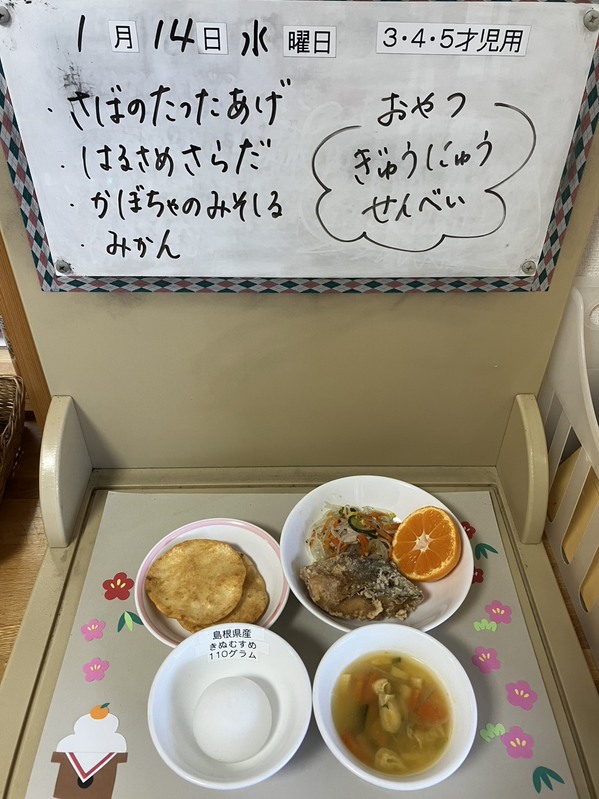 1月14日水曜日 3・4・5才児用
・さばのたったあげ
・はるさめさらだ
・かぼちゃのみそしる
・みかん
おやつ
ぎゅうにゅう
せんべい
島根県産
きぬむすめ
110グラム